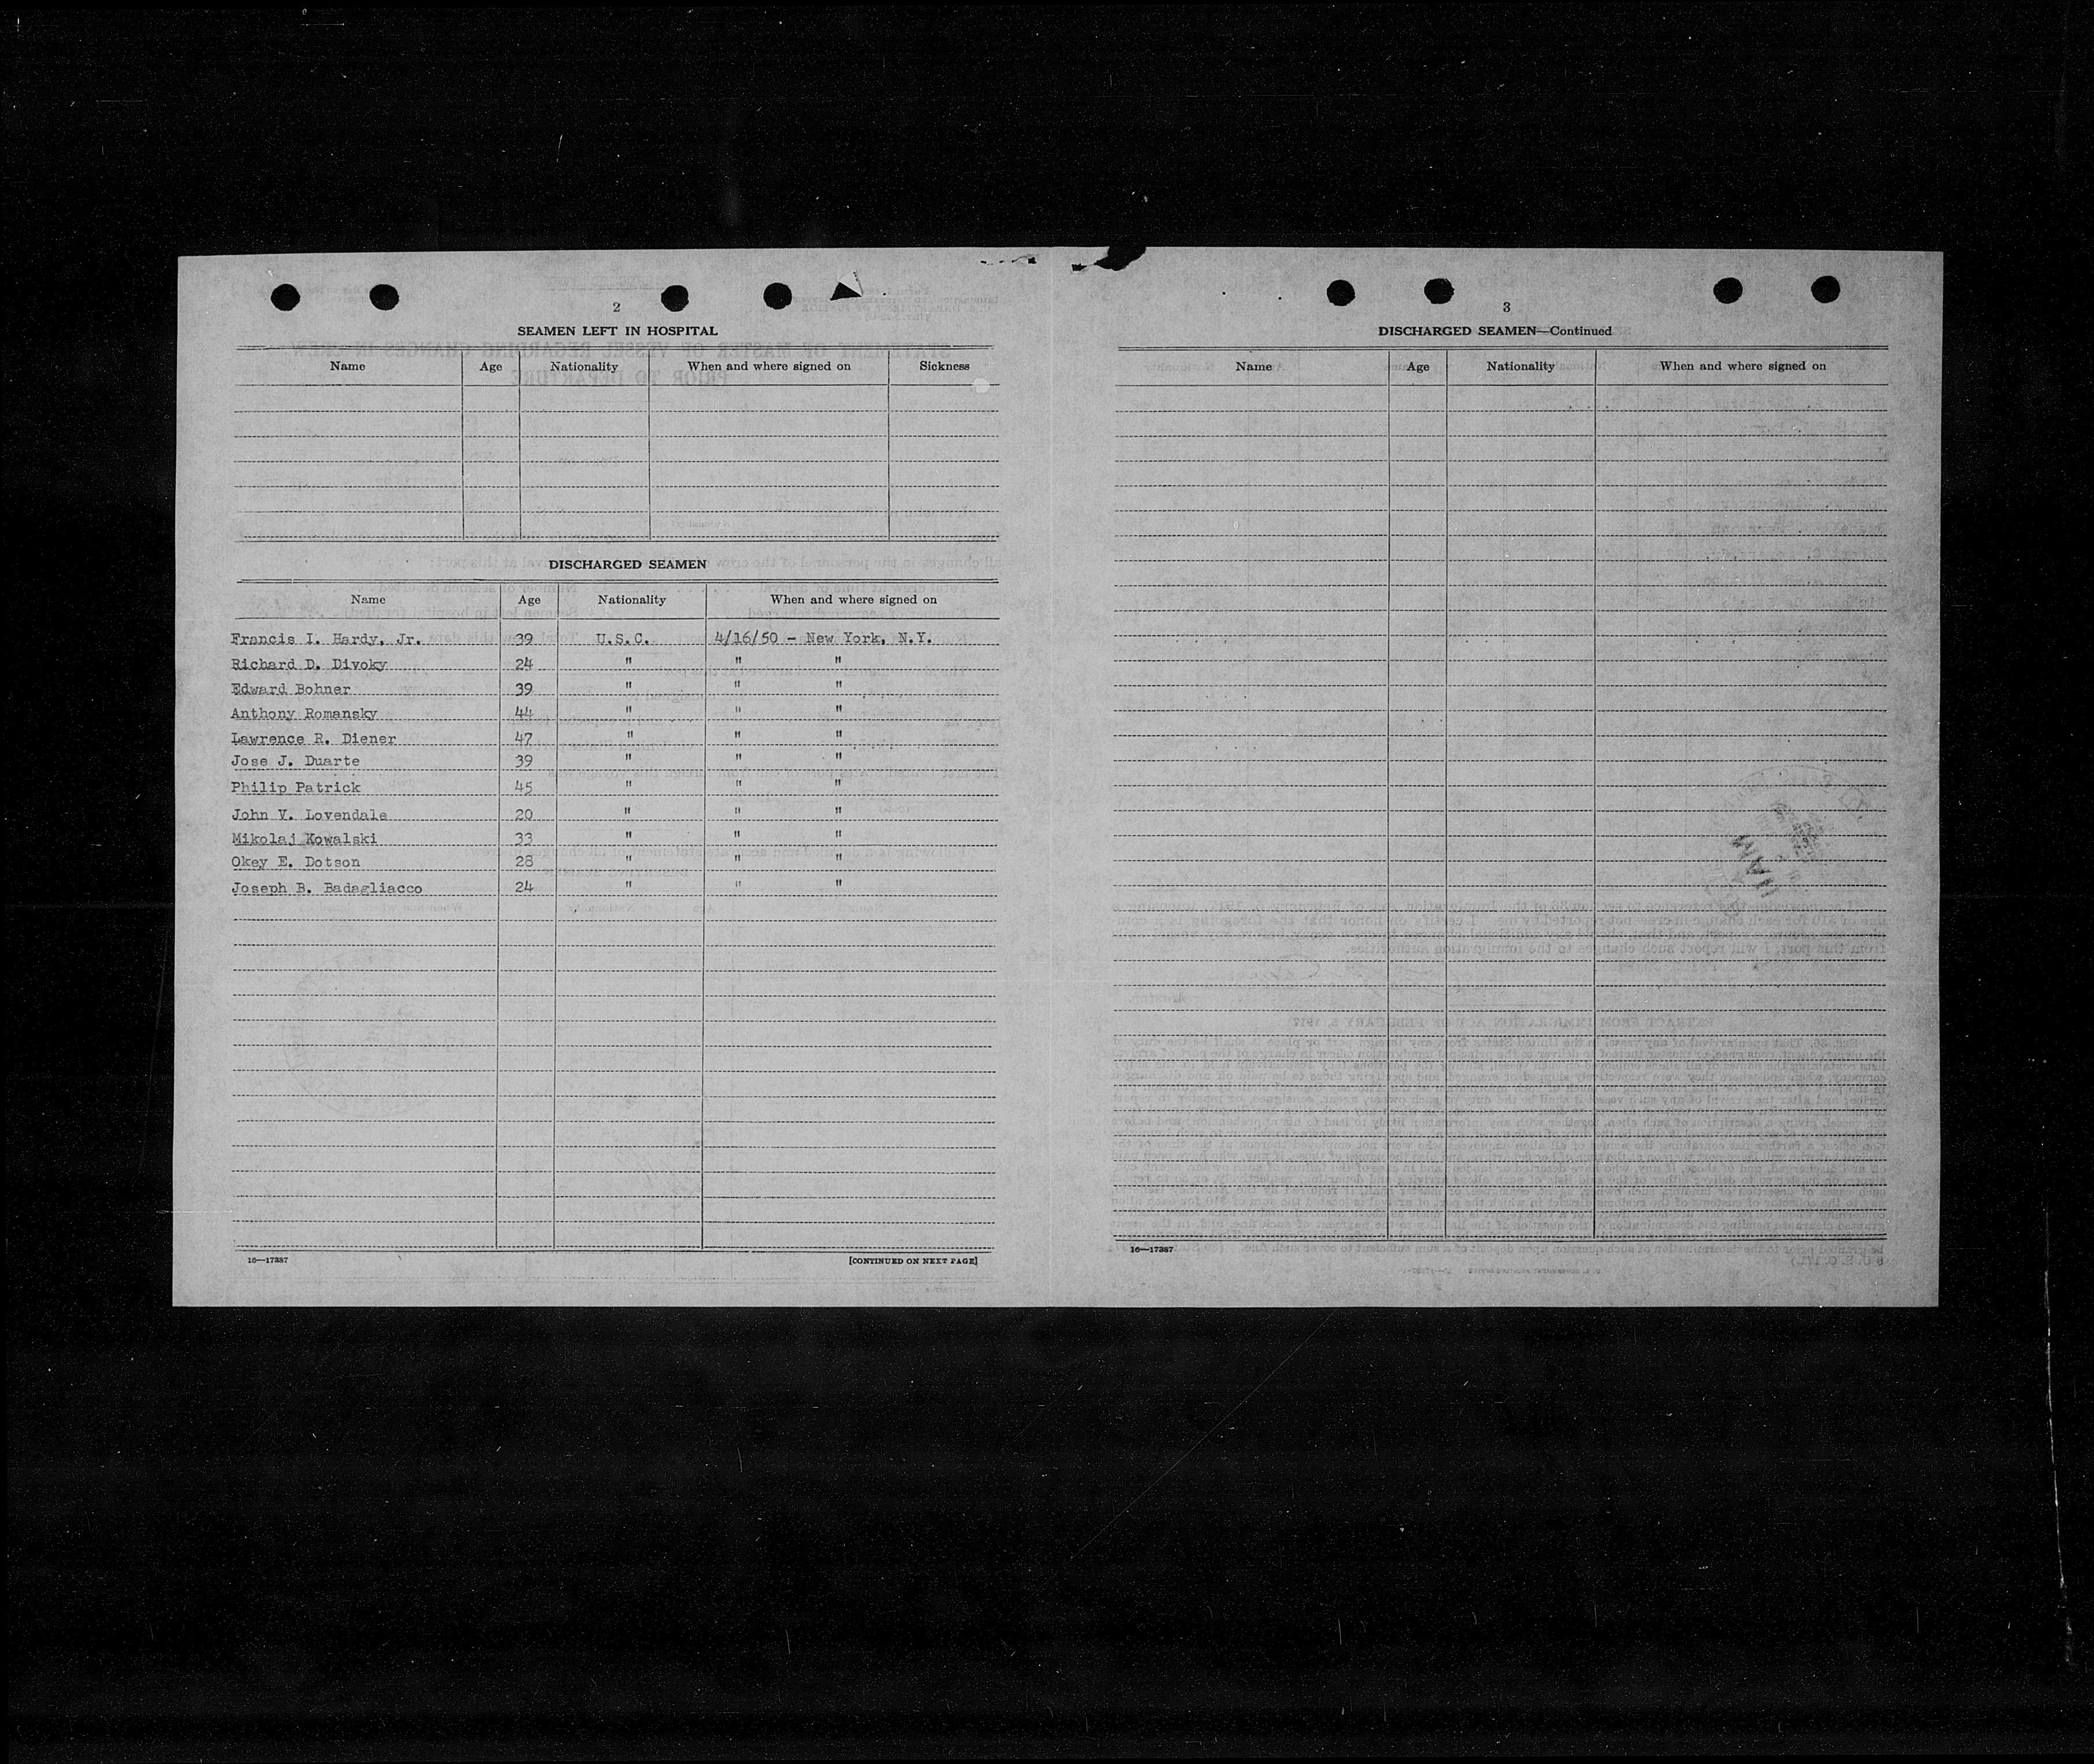 2
SEAMEN LEFT IN HOSPITAL
Name Age Nationality When and where signed on Sickness
DISCHARGED SEAMEN
Name Age Nationality When and where signed on
Francis I. Hardy, Jr. 39 U.S.C. 4/16/50 - New York, N.Y.
Richard D. Divoky 24 " " "
Edward Bohner 39 " " "
Anthony Romansky 44 " " "
Lawrence R. Diener 47 " " "
Jose J. Duarte 39 " " "
Philip Patrick 45 " " "
John V. Lovendale 20 " " "
Mikolaj Kowalski 33 " " "
Okey E. Dotson 28 " " "
Joseph B. Badagliacco 24 " " "
16—17387 [CONTINUED ON NEXT PAGE]
3
DISCHARGED SEAMEN—Continued
Name Age Nationality When and where signed on
16—17387